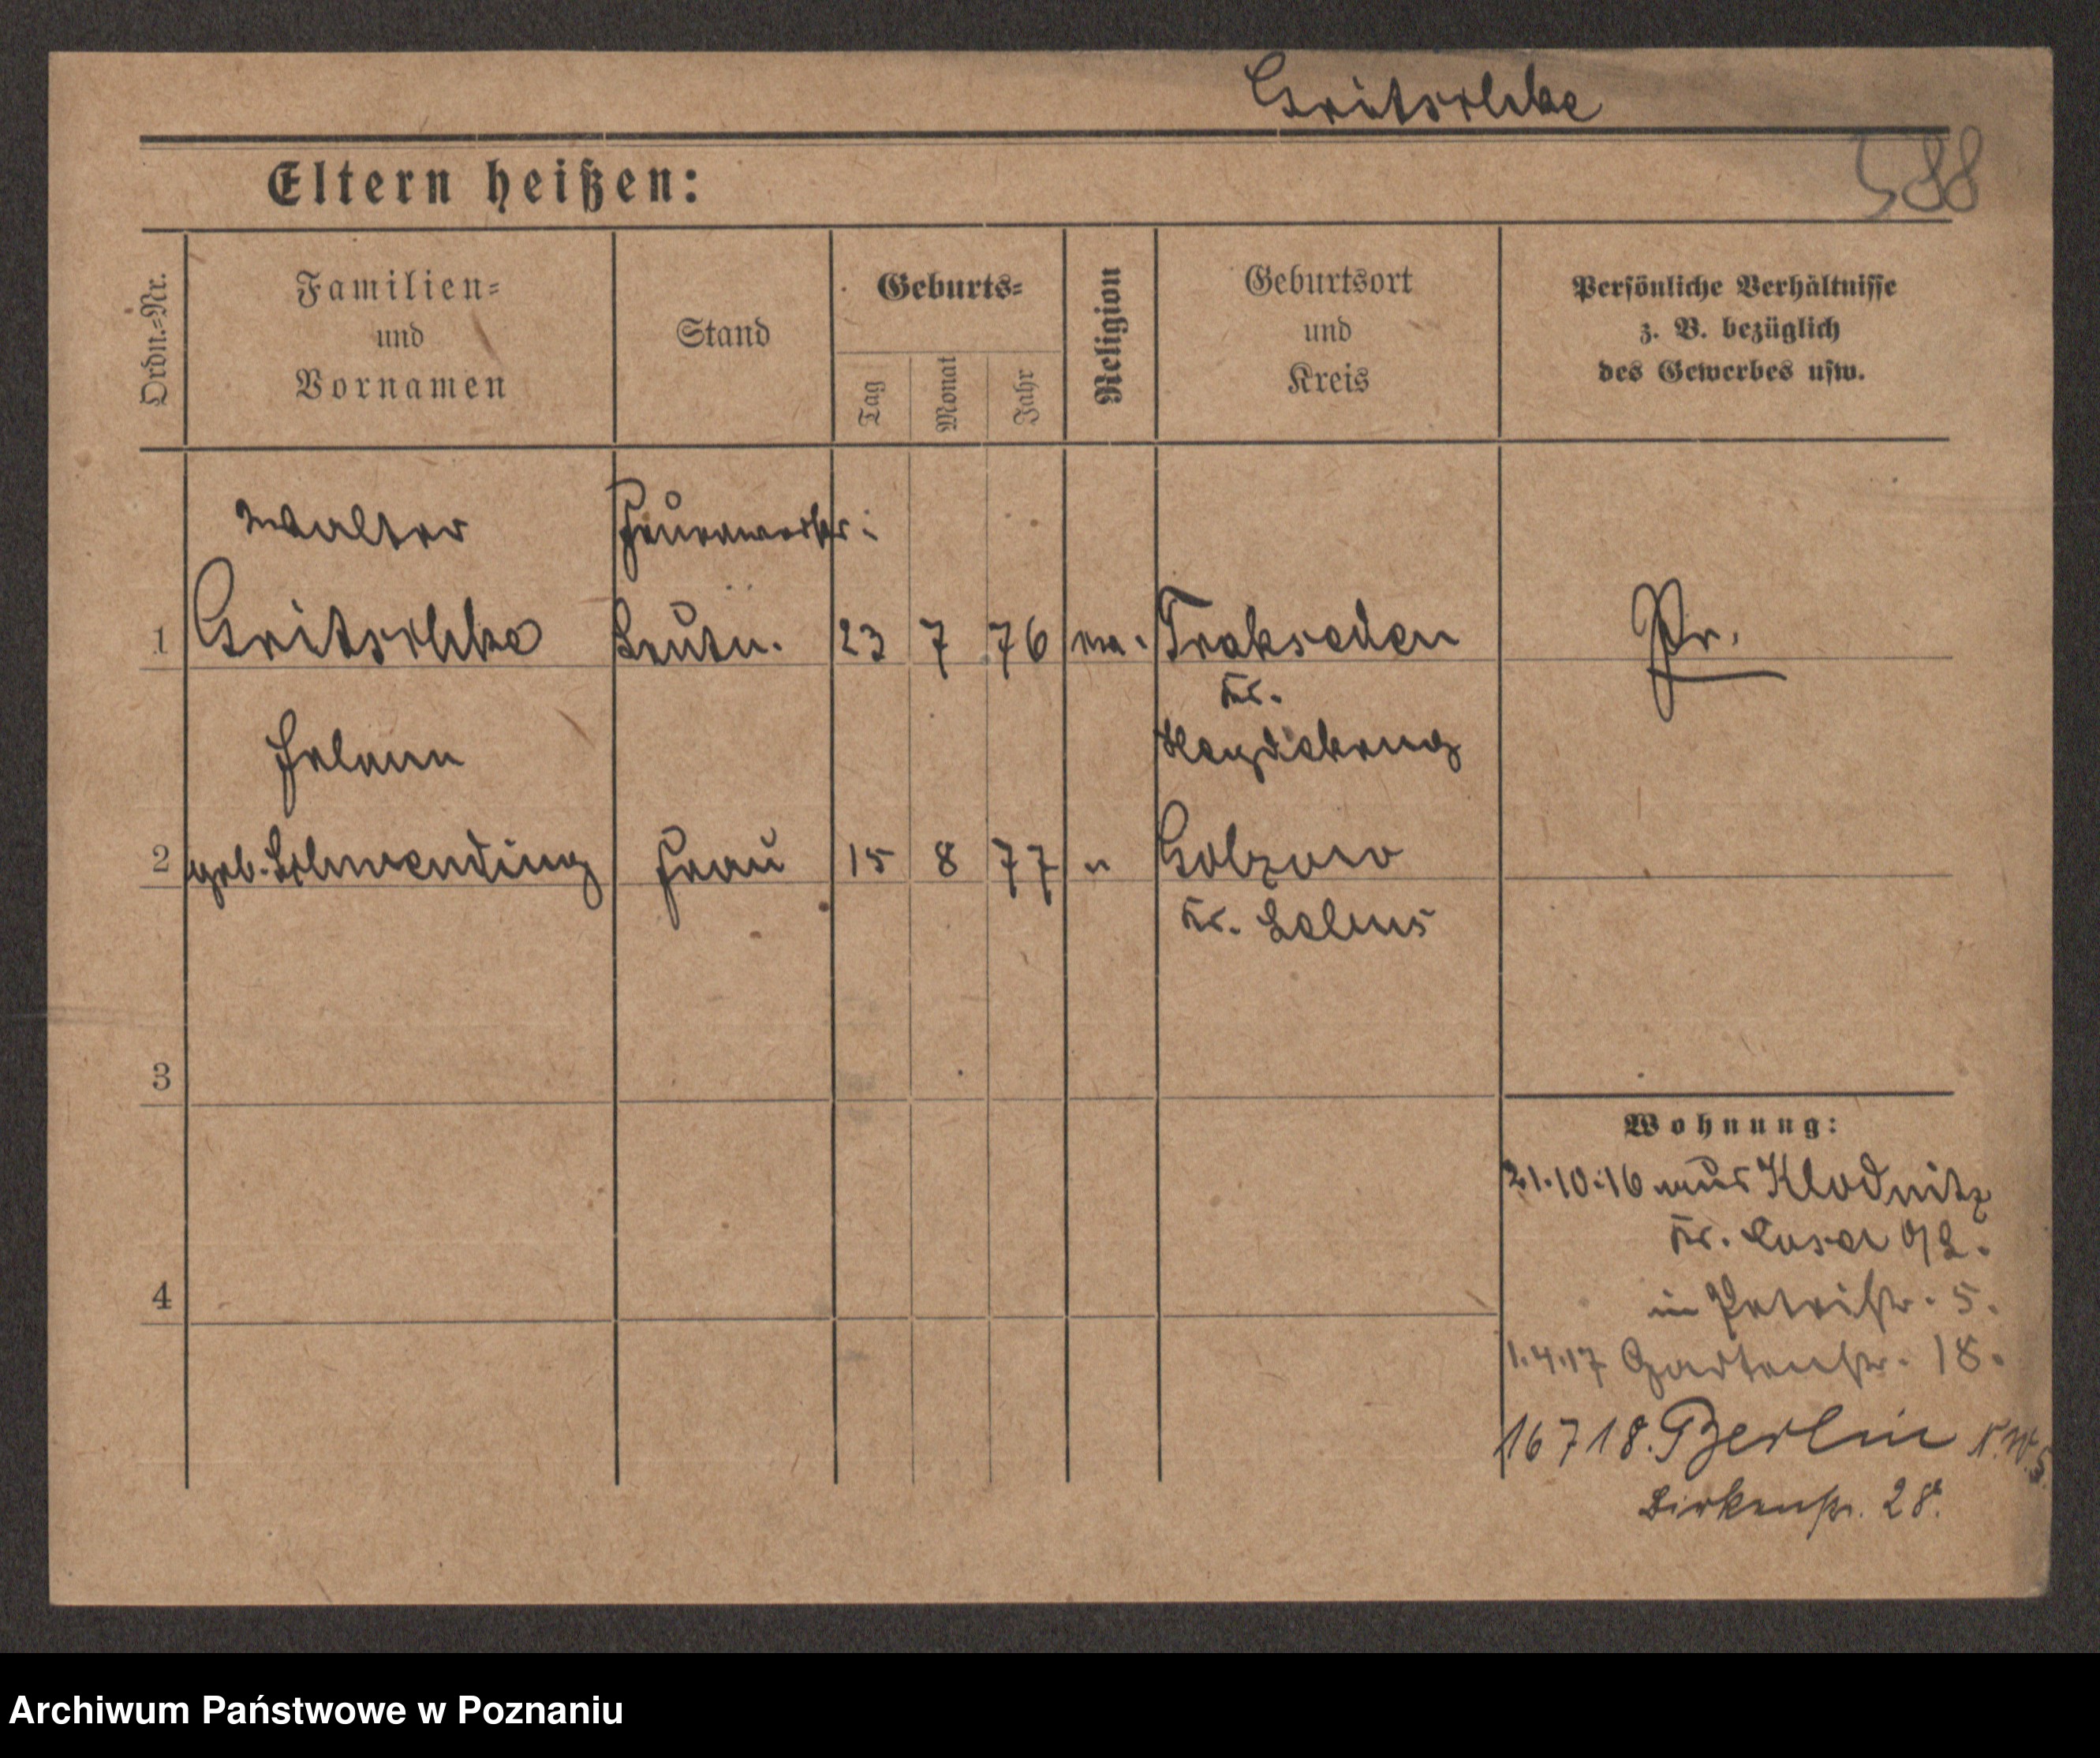 Gritschke
588
Eltern heißen:
Ordn.=Nr.
Familien=
und
Vornamen
Stand
Geburts=
Tag
Monat
Jahr
Religion
Geburtsort
und
Kreis
Persönliche Verhältnisse
z. B. bezüglich
des Gewerbes usw.
Walter
Feuerwerks:
1 Gritschke Leutn. 23 7 76 ev. Trakseden Pr.
Kr.
Heydekrug
Helene
2 geb. Schwending Frau 15 8 77 " Golzow
Kr. Lebus
3
4
Wohnung:
21.10.16 aus Klodnitz
Kr. Cosel O/S.
in Petristr. 5.
1.4.17 Gartenstr. 18.
16 7 18. Berlin N.W. 5
Birkenstr. 28.
Archiwum Państwowe w Poznaniu